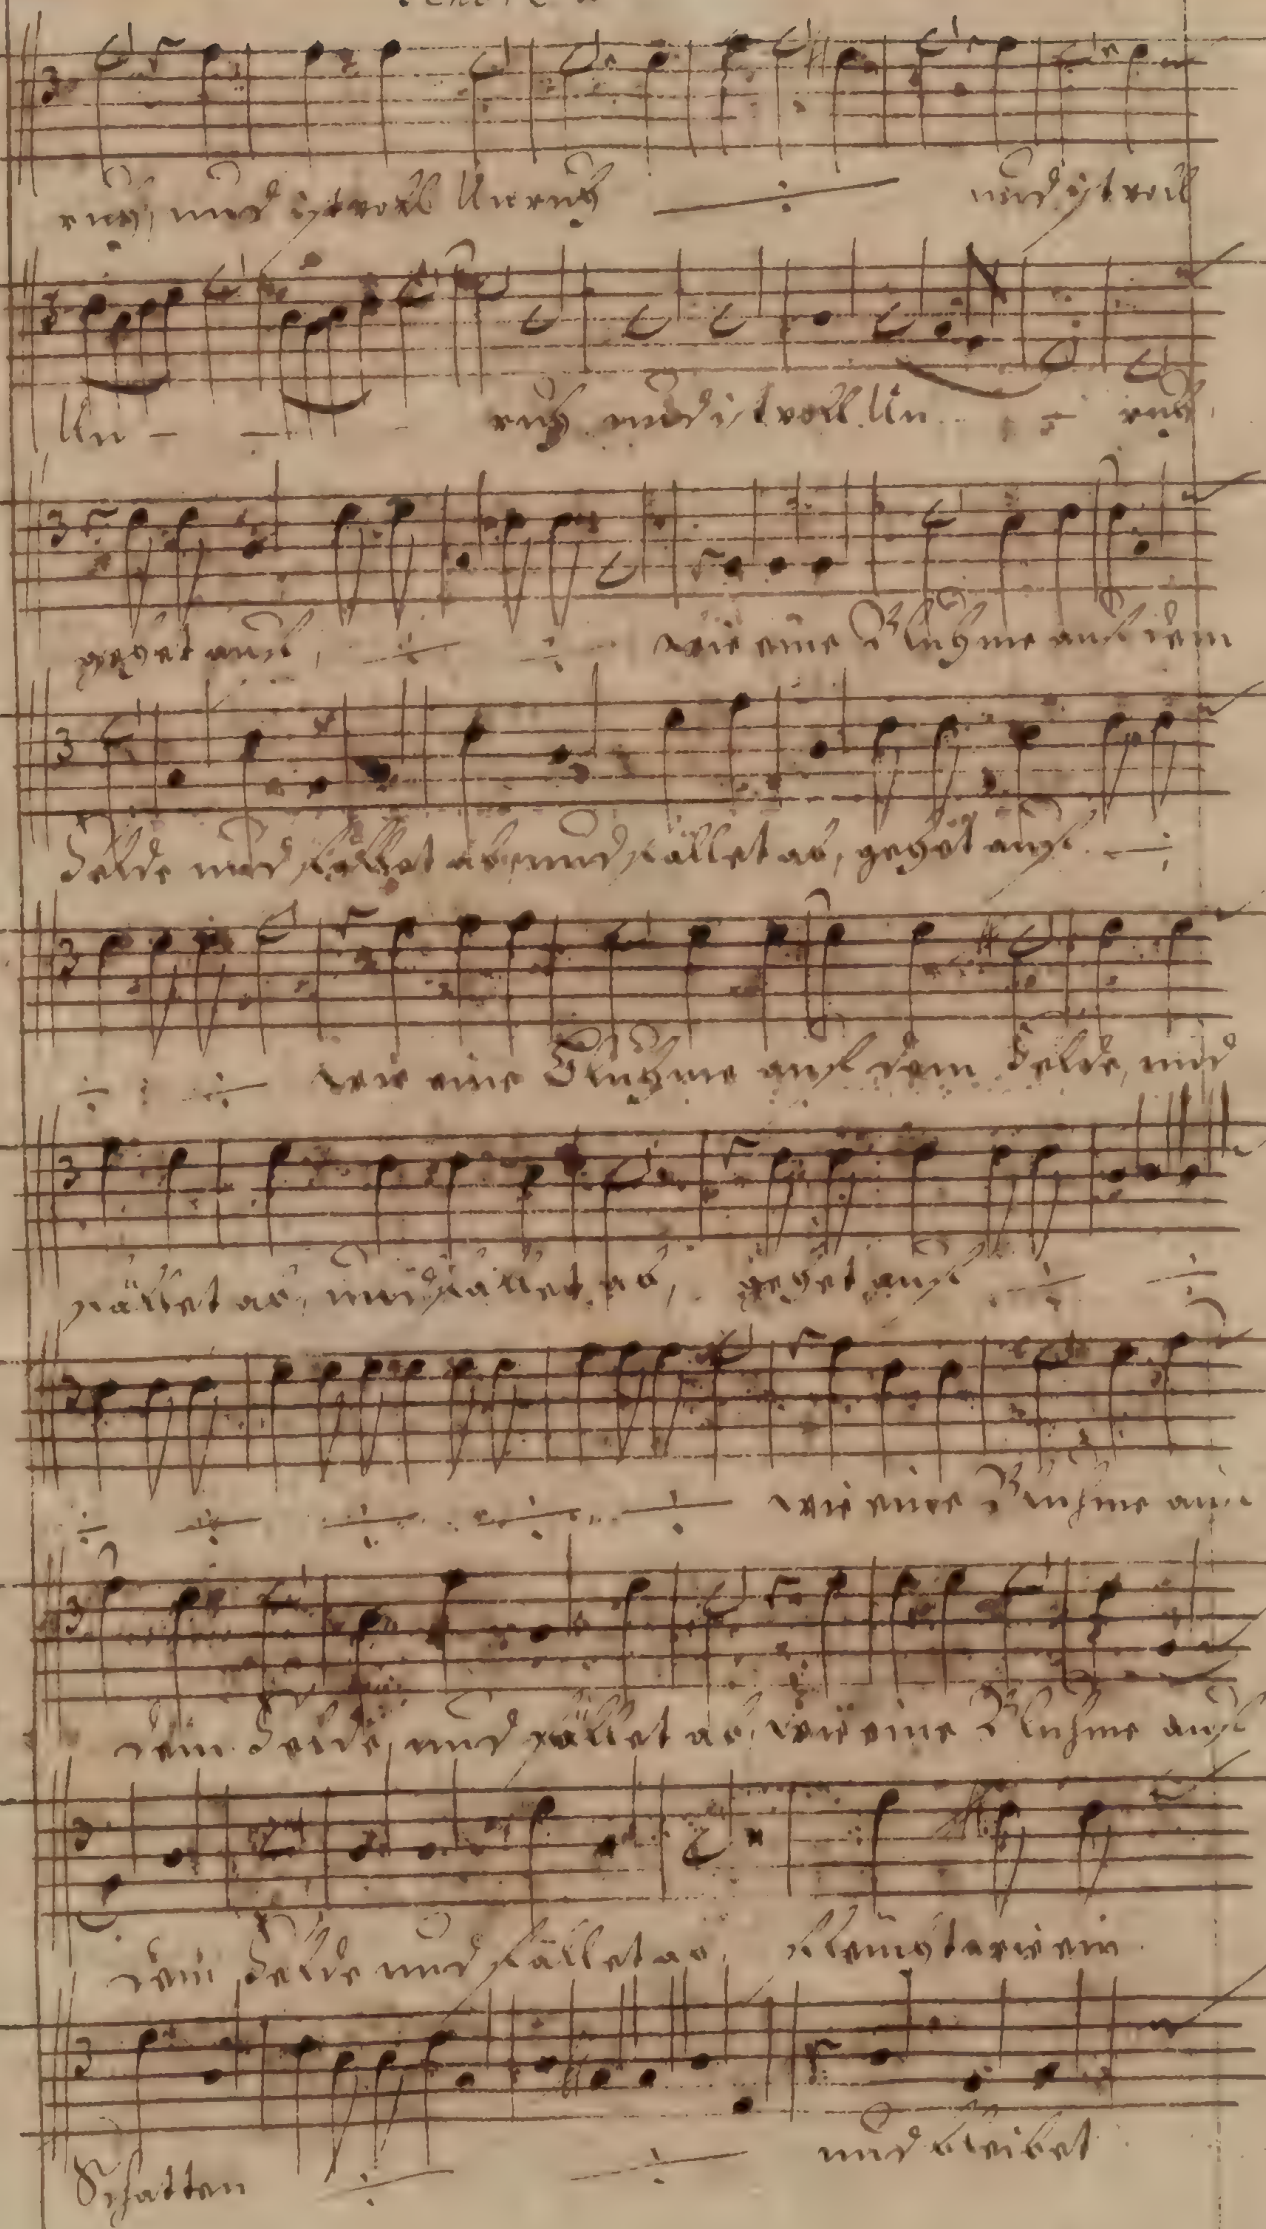 ruh, und ist voll Unruh ÷ und ist voll
Un - - - ruh und ist voll Un - ÷ ruh.
gehet auf, ÷ ÷ wie eine Bluhme auf dem
Felde und fället ab, und fället ab, gehet auf ÷
÷ ÷ wie eine Bluhme auf dem Felde, und
fället ab, und fället ab, gehet auf ÷ ÷
÷ ÷ ÷ ÷ ÷ wie eine Bluhme auf
dem Felde, und fället ab, wie eine Bluhme auf
dem Felde und fället ab, fleught wie ein
Schatten ÷ ÷ und bleibet